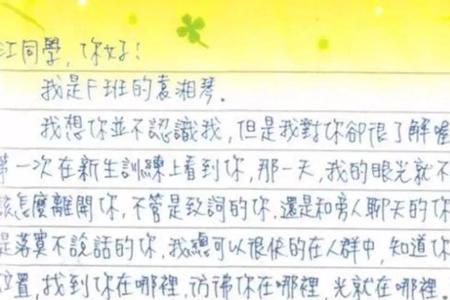 江同學，你好！
我是F班的袁湘琴。
我想你並不認識我，但是我對你卻很了解喔
第一次在新生訓練上看到你，那一天，我的眼光就不
該怎麼離開你，不管是致詞的你，還是和旁人聊天的你
是落寞不說話的你，我總可以很快的在人群中，知道你
位置，找到你在哪裡，彷彿你在哪裡，光就在哪裡。